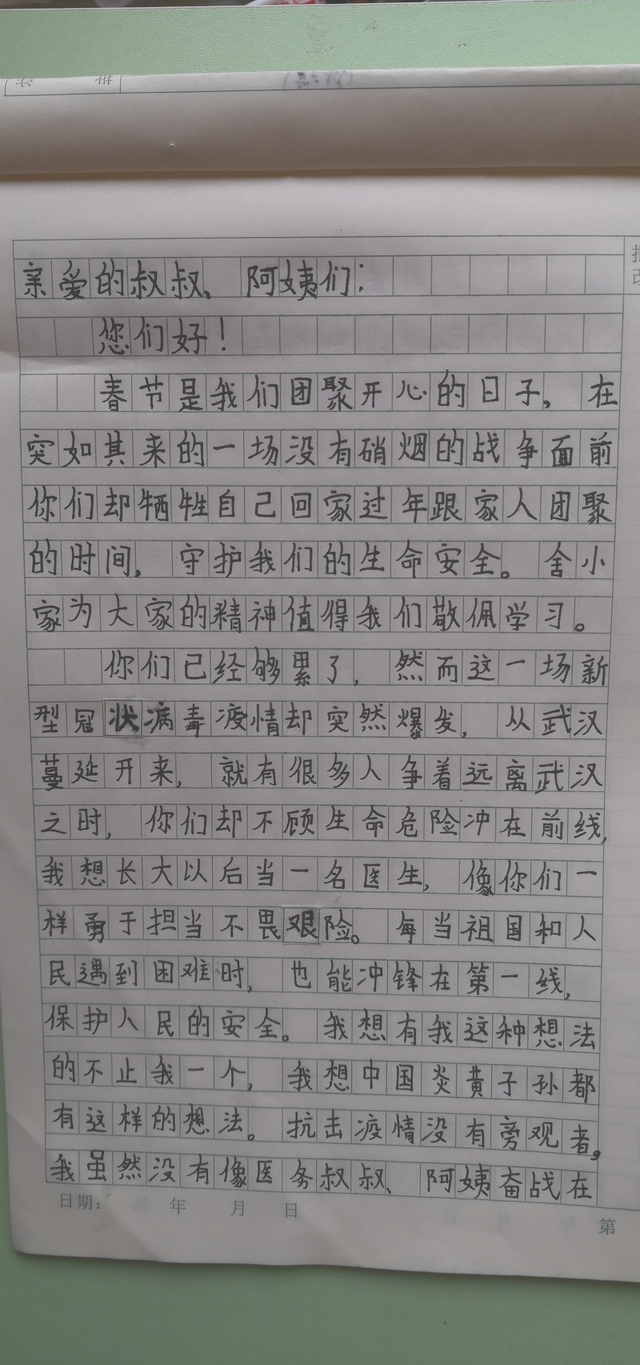 亲爱的叔叔、阿姨们:
您们好!
春节是我们团聚开心的日子,在
突如其来的一场没有硝烟的战争面前
你们却牺牲自己回家过年跟家人团聚
的时间,守护我们的生命安全。舍小
家为大家的精神值得我们敬佩学习。
你们已经够累了,然而这一场新
型冠状病毒疫情却突然爆发,从武汉
蔓延开来,就有很多人争着远离武汉
之时,你们却不顾生命危险冲在前线,
我想长大以后当一名医生,像你们一
样勇于担当不畏艰险。每当祖国和人
民遇到困难时,也能冲锋在第一线,
保护人民的安全。我想有我这种想法
的不止我一个,我想中国炎黄子孙都
有这样的想法。抗击疫情没有旁观者。
我虽然没有像医务叔叔、阿姨奋战在
日期: 年 月 日
第